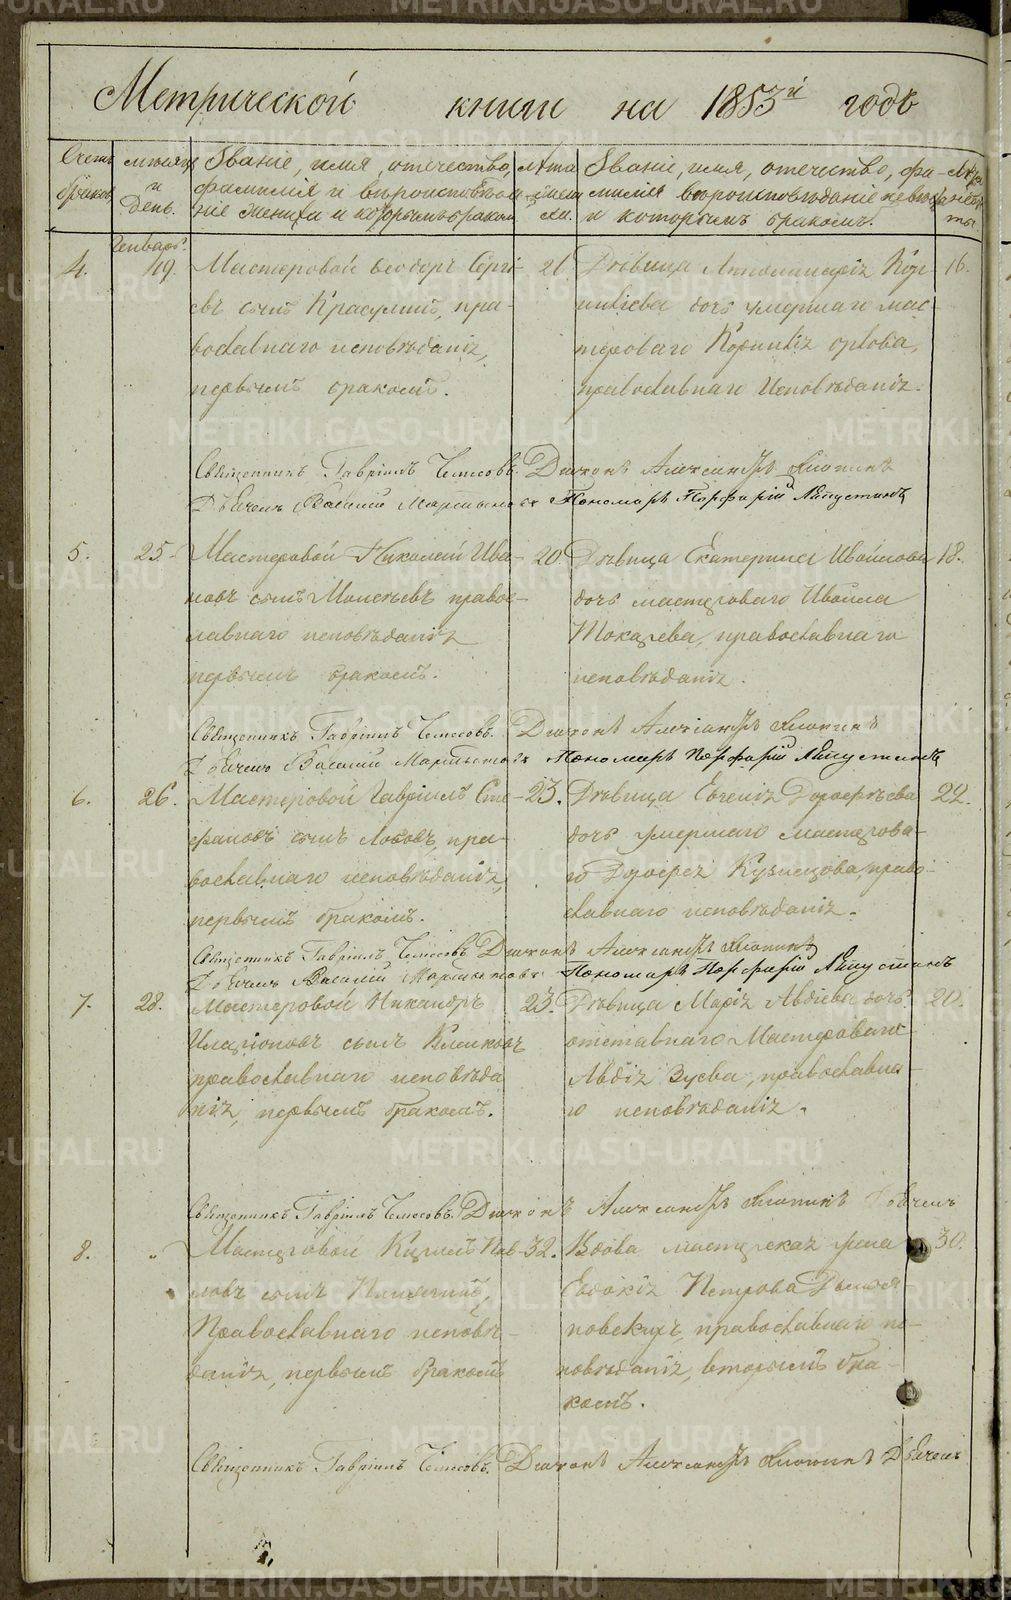 Метрической книги на 1853й годъ
Счетъ браковъ
Мѣсяцъ и день.
Званіе, имя, отечество,
фамилія и вѣроисповѣда-
ніе жениха и которымъ бракомъ
Лѣта жениха
Званіе, имя, отечество, фа-
милія вѣроисповѣданіе невѣсты
и которымъ бракомъ.
Лѣта невѣсты.
Генварь.
4. 19. Мастеровой Ѳеодоръ Сергі-
евъ сынъ пра-
вославнаго исповѣданія,
первымъ бракомъ.
21
Дѣвица Апполинарія Кор-
ниліева дочь умершаго мас-
тероваго Корнилія Орлова,
православнаго Исповѣданія.
16.
Священникъ Гавріилъ Діаконъ Александръ
Дьячекъ Василій Пономарь Порфирій
5. 25. Мастеровой Николай Ива-
новъ сынъ правос-
лавнаго исповѣданія
первымъ бракомъ.
20.
Дѣвица Екатерина
дочь мастероваго
Токарева, православнаго
исповѣданія.
18.
Священникъ Гавріилъ Діаконъ Александръ
Дьячекъ Василій Пономарь Порфирій
6. 26. Мастеровой Гавріилъ Сте-
фановъ сынъ пра-
вославнаго исповѣданія,
первымъ бракомъ.
23.
Дѣвица Евгенія Дорофѣева
дочь умершаго мастерова-
го Дорофея Кузнецова, право-
славнаго исповѣданія.
22.
Священникъ Гавріилъ Діаконъ Александръ
Дьячекъ Василій Пономарь Порфирій
7. 28. Мастеровой Никандръ
Иларіоновъ сынъ
православнаго исповѣда
нія, первымъ бракомъ.
23.
Дѣвица Марія Авдіева дочь
отставнаго Мастероваго
Авдія Зуева, православна-
го исповѣданія.
20.
Священникъ Гавріилъ Діаконъ Александръ Дьячекъ
8. „ Мастеровой Кирилъ Пав-
ловъ сынъ
Православнаго исповѣ-
данія, первымъ бракомъ
32.
Вдова мастерская жена
Евдокія Петрова
православнаго ис-
повѣданія, вторымъ бра-
комъ.
30.
Священникъ Гавріилъ Діаконъ Александръ Дьячекъ
METRIKI.GASO-URAL.RU